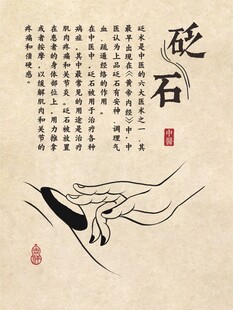 砭石
中醫
砭术是中医的六大医术之一，其
最早出现在《黄帝内经》中，中
医认为上品砭石有安神、调理气
血、疏通经络的作用。
在中医中，砭石被用于治疗各种
病症。其中最常见的用途是治疗
肌肉疼痛和关节炎。砭石被放置
在患者的身体部位上，用力推拿
或者按摩，以缓解肌肉和关节的
疼痛和僵硬感。